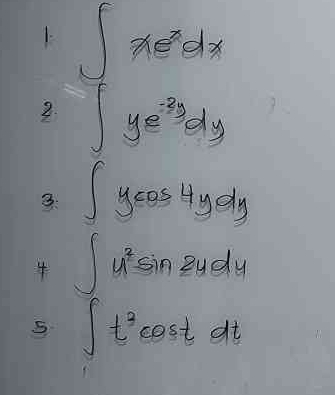 1. ∫ xeˣdx
2. ∫ ye⁻²ʸdy
3. ∫ ycos 4ydy
4 ∫ u² sin 2udu
5. ∫ t² cost dt